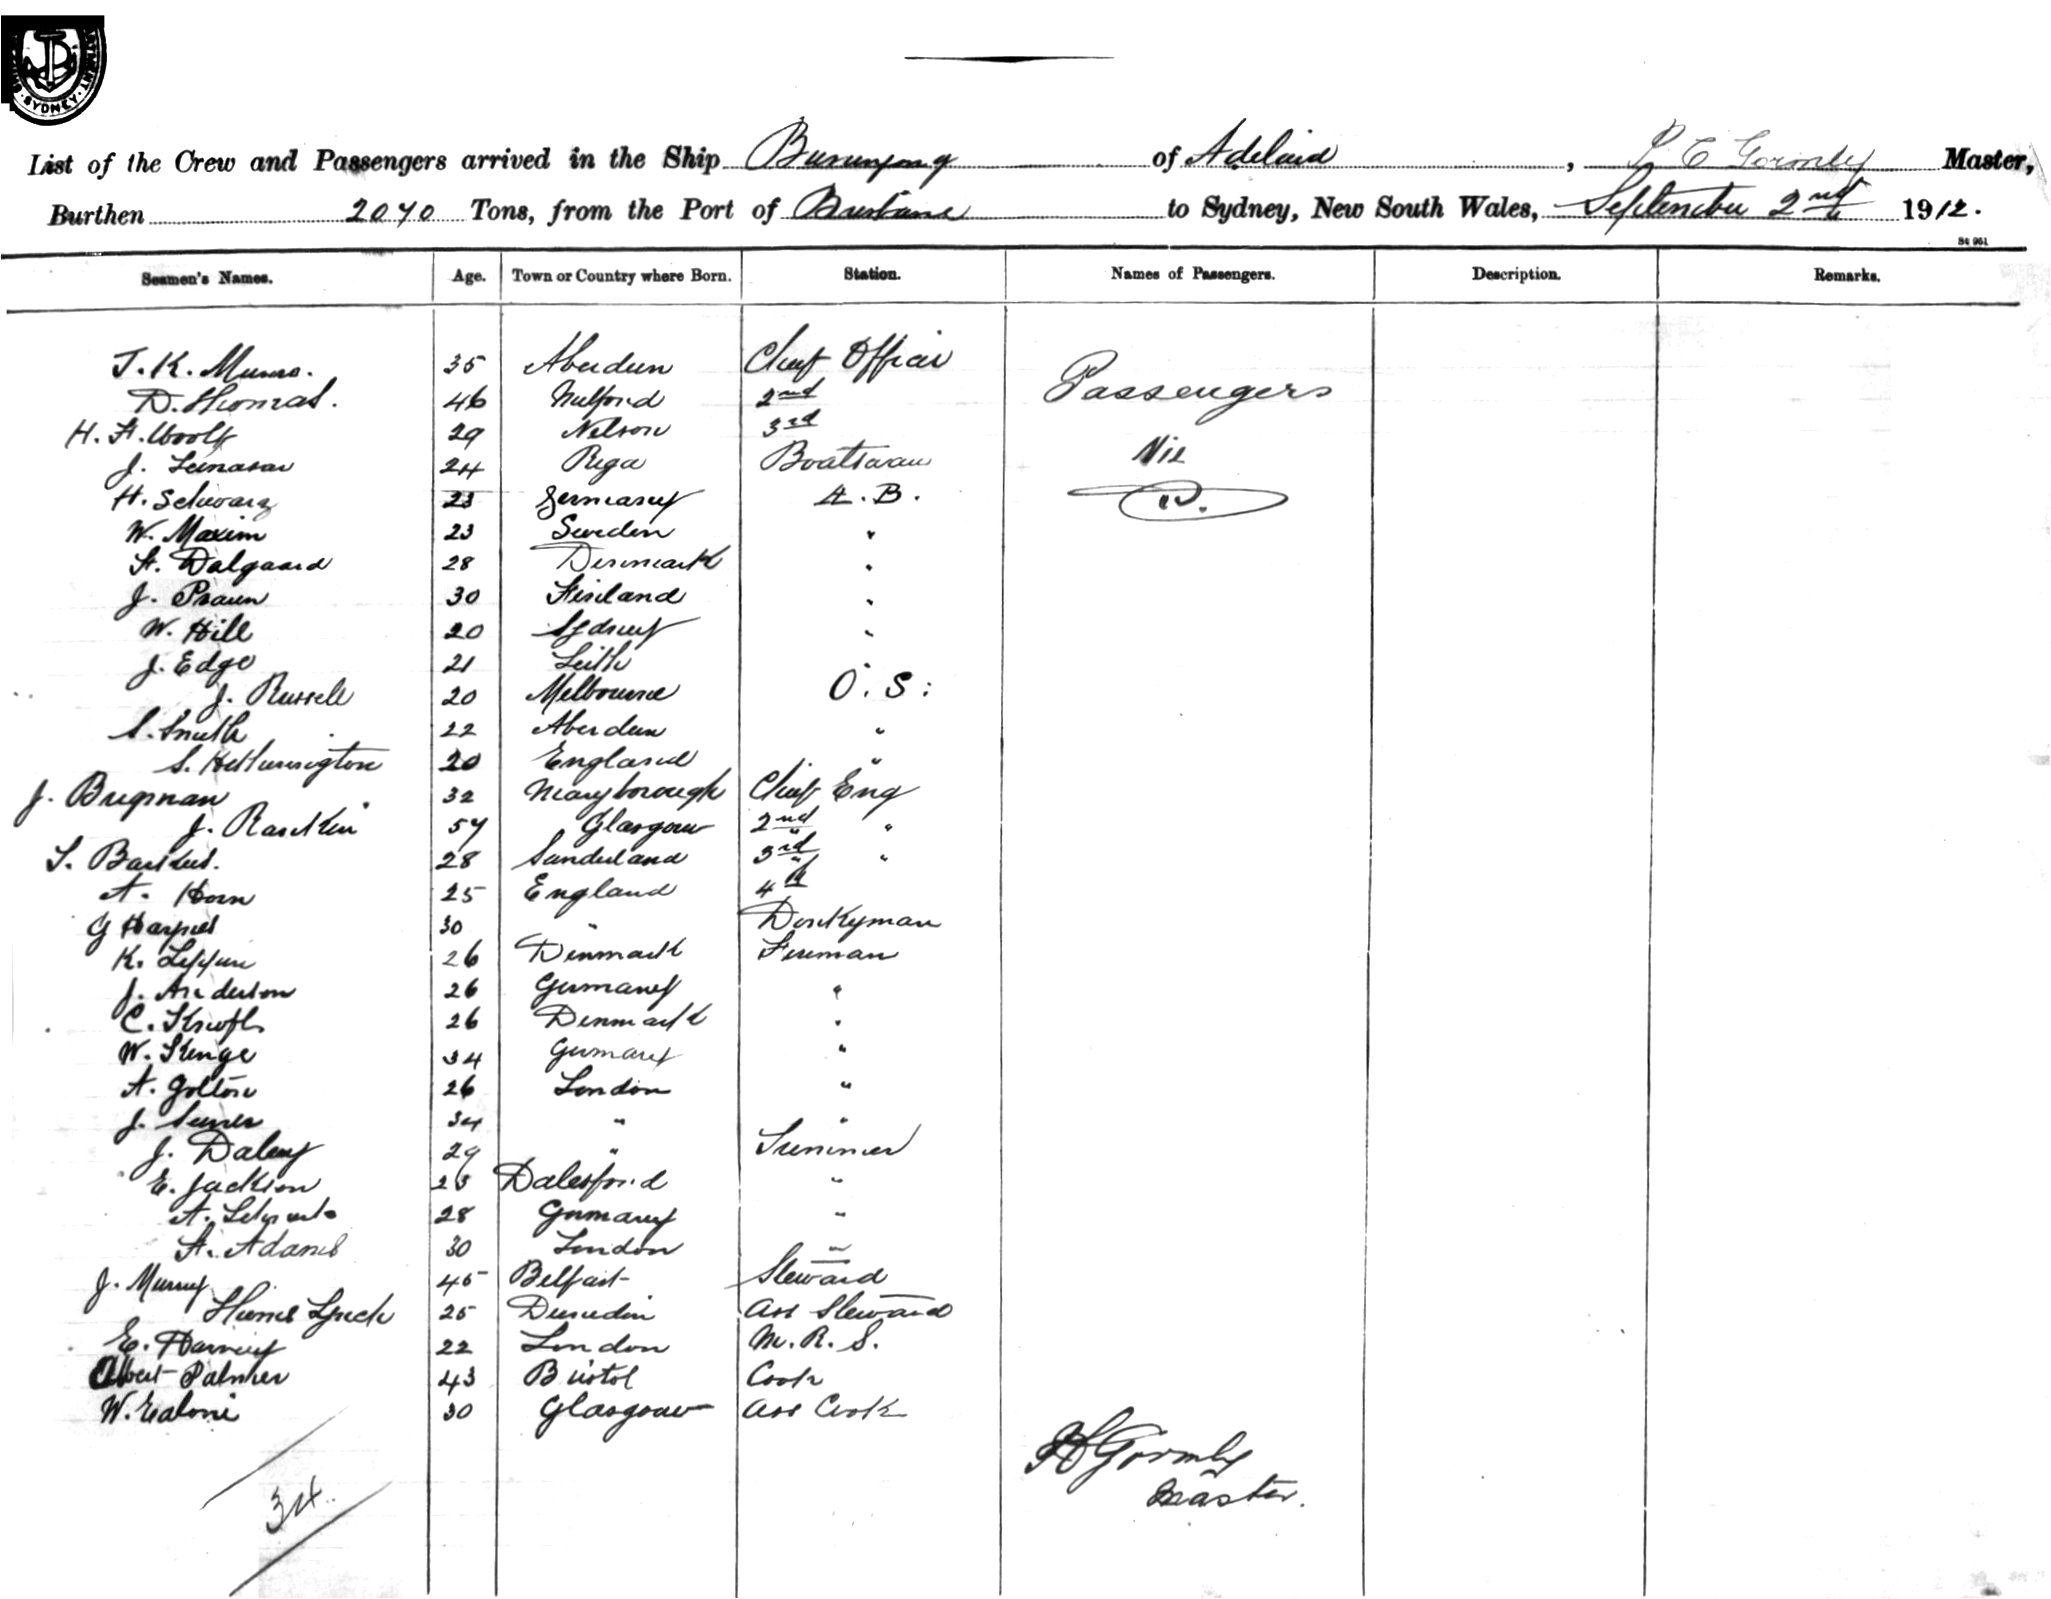 SYDNEY
List of the Crew and Passengers arrived in the Ship Buninyong of Adelaid, P C Gormly Master,
Burthen 2070 Tons, from the Port of Brisbane to Sydney, New South Wales, September 2nd 1912.
St 961
Seamen's Names. Age. Town or Country where Born. Station. Names of Passengers. Description. Remarks.
J. K. Munro. 35 Aberdeen Chief Officer
Passengers
D. Thomas. 46 Milford 2nd
H. F. Woolf 29 Nelson 3rd
Nil
J. 24 Riga Boatswain
H. Schwarz 23 Germany A.B.
W. Maxim 23 Sweden "
H. Dalgaard 28 Denmark "
J. Praun 30 Finland "
W. Hill 20 Sydney "
J. Edge 21 Leith "
J. Russell 20 Melbourne O.S.
S. Smith 22 Aberdeen "
S. Hetherington 20 England "
J. 32 Maryborough Chief Eng
J. Rankin 57 Glasgow 2nd "
T. 28 Sunderland 3rd "
A. Horn 25 England 4th "
30 " Donkyman
K. 26 Denmark Fireman
J. Anderson 26 Germany "
C. 26 Denmark "
W. Kenge 34 Germany "
A. Golton 26 London "
J. 34 " "
J. Daley 29 " Trimmer
E. Jackson 23 Dalesford "
A. 28 Germany "
H. Adams 30 London "
J. Murray 45 Belfast Steward
25 Dunedin Ass Steward
E. Harvey 22 London M.R.S.
Albert Palmer 43 Bristol Cook
W. 30 Glasgow Ass Cook
Gormly
Master.
34